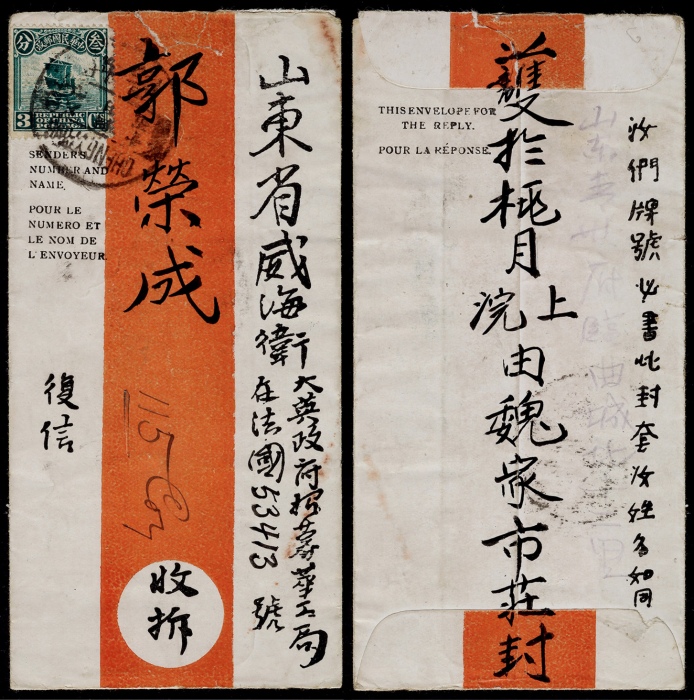 叁 中華民國郵政 分
3 REPUBLIC OF CHINA POSTAGE Cts
SENDERS
NUMBER AND
NAME.
POUR LE
NUMERO ET
LE NOM DE
L'ENVOYEUR.
山東省威海衛
行大英政府招募華工局
在法國53413號
郭榮成
收拆
復信
115
THIS ENVELOPE FOR
THE REPLY.
POUR LA RÉPONSE.
汝們牌號必書此封套汝姓名如同
山东青州府臨曲城
里
於桃月
上浣
由魏家市莊封